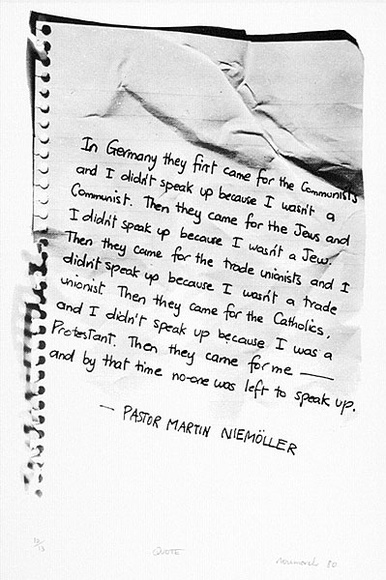 In Germany they first came for the Communists
and I didn't speak up because I wasn't a
Communist. Then they came for the Jews and
I didn't speak up because I wasn't a Jew.
Then they came for the trade unionists and I
didn't speak up because I wasn't a trade
unionist. Then they came for the Catholics,
and I didn't speak up because I was a
Protestant. Then they came for me —
and by that time no-one was left to speak up.
— PASTOR MARTIN NIEMÖLLER
QUOTE
80